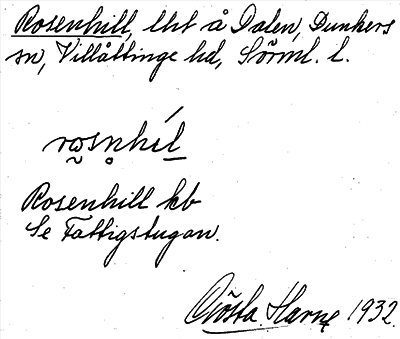 Rosenhill, lht å Dalen, Dunkers
sn, Villåttinge hd, Södml. l.
Rosenhill kb
Se Fattigstugan.
Gösta Harne 1932.